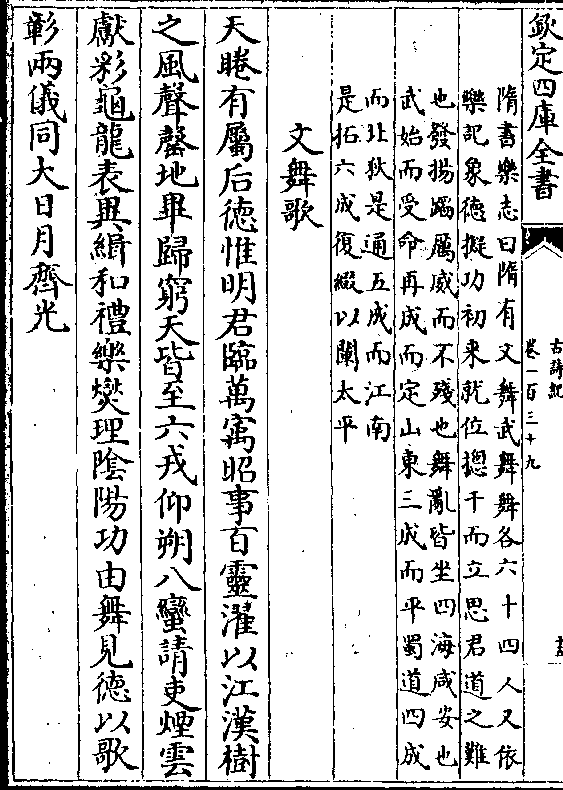 欽定四庫全書
古詩紀
卷一百三十九
隋書樂志曰隋有文舞武舞舞各六十四人又依
樂記象德擬功初来就位摠干而立思君道之難
也發揚蹈厲威而不殘也舞亂皆坐四海咸安也
武始而受命再成而定山東三成而平蜀道四成
而北狄是通五成而江南
是拓六成復綴以闡太平
文舞歌
天睠有屬后德惟明君臨萬㝢昭事百靈濯以江漢樹
之風聲罄地畢歸窮天皆至六戎仰朔八蠻請吏煙雲
獻彩龜龍表異緝和禮樂燮理陰陽功由舞見德以歌
彰兩儀同大日月齊光